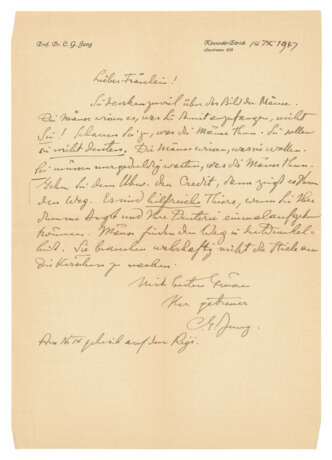 Prof. Dr. C. G. Jung
Küsnacht-Zürich 14.IX 1947
Seestrasse 228
Liebes Fräulein!
Sie denken zuviel über das Bild der Mäuse.
Die Mäuse wissen es, was sie damit anfangen, nicht
Sie! Schauen Sie zu, was die Mäuse thun. Sie sollen
sie nicht deuten. Die Mäuse wissen, was sie wollen.
Sie müssen nur geduldig warten, was die Mäuse thun.
Geben Sie dem Unbw. den Credit, dann zeigt es Ihnen
den Weg. Es sind hilfreiche Thiere, wenn Sie Ihre
dumme Angst und Ihre Deuterei einmal aufgeben
können. Mäuse finden den Weg in der Dunkel-
heit. Sie brauchen wahrhaftig nicht die Stiele an
die Kirschen zu machen.
Mit besten Grüssen
Ihr getreuer
C G Jung.
Am 16. IX geh ich auf den Rigi.